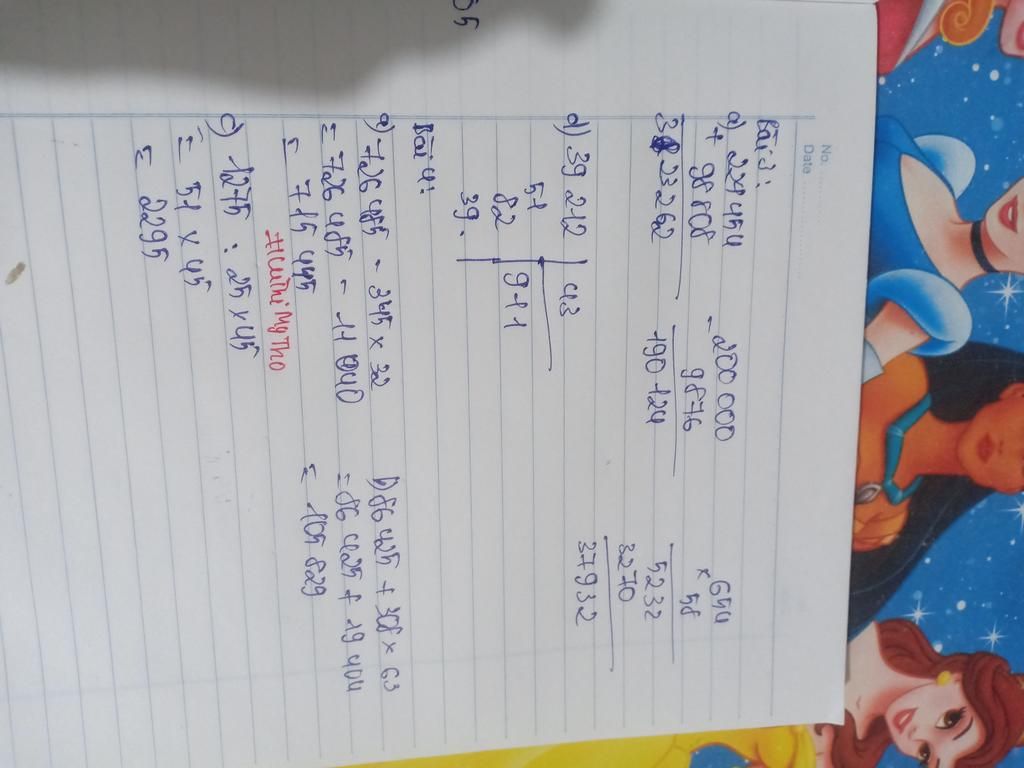 No.
Date
Bài 3:
a) 224 454 - 200 000 654
+ 98 808 9876 x 58
323 262 190 124 5232
3270
37932
d) 39 212 43
51 911
82
39.
Bài 4:
a) 726 485 - 345 x 32 b) 86 425 + 308 x 63
= 726 485 - 11 040 = 86 425 + 19 404
= 715 445 = 105 829
c) 1275 : 25 x 45
= 51 x 45
= 2295